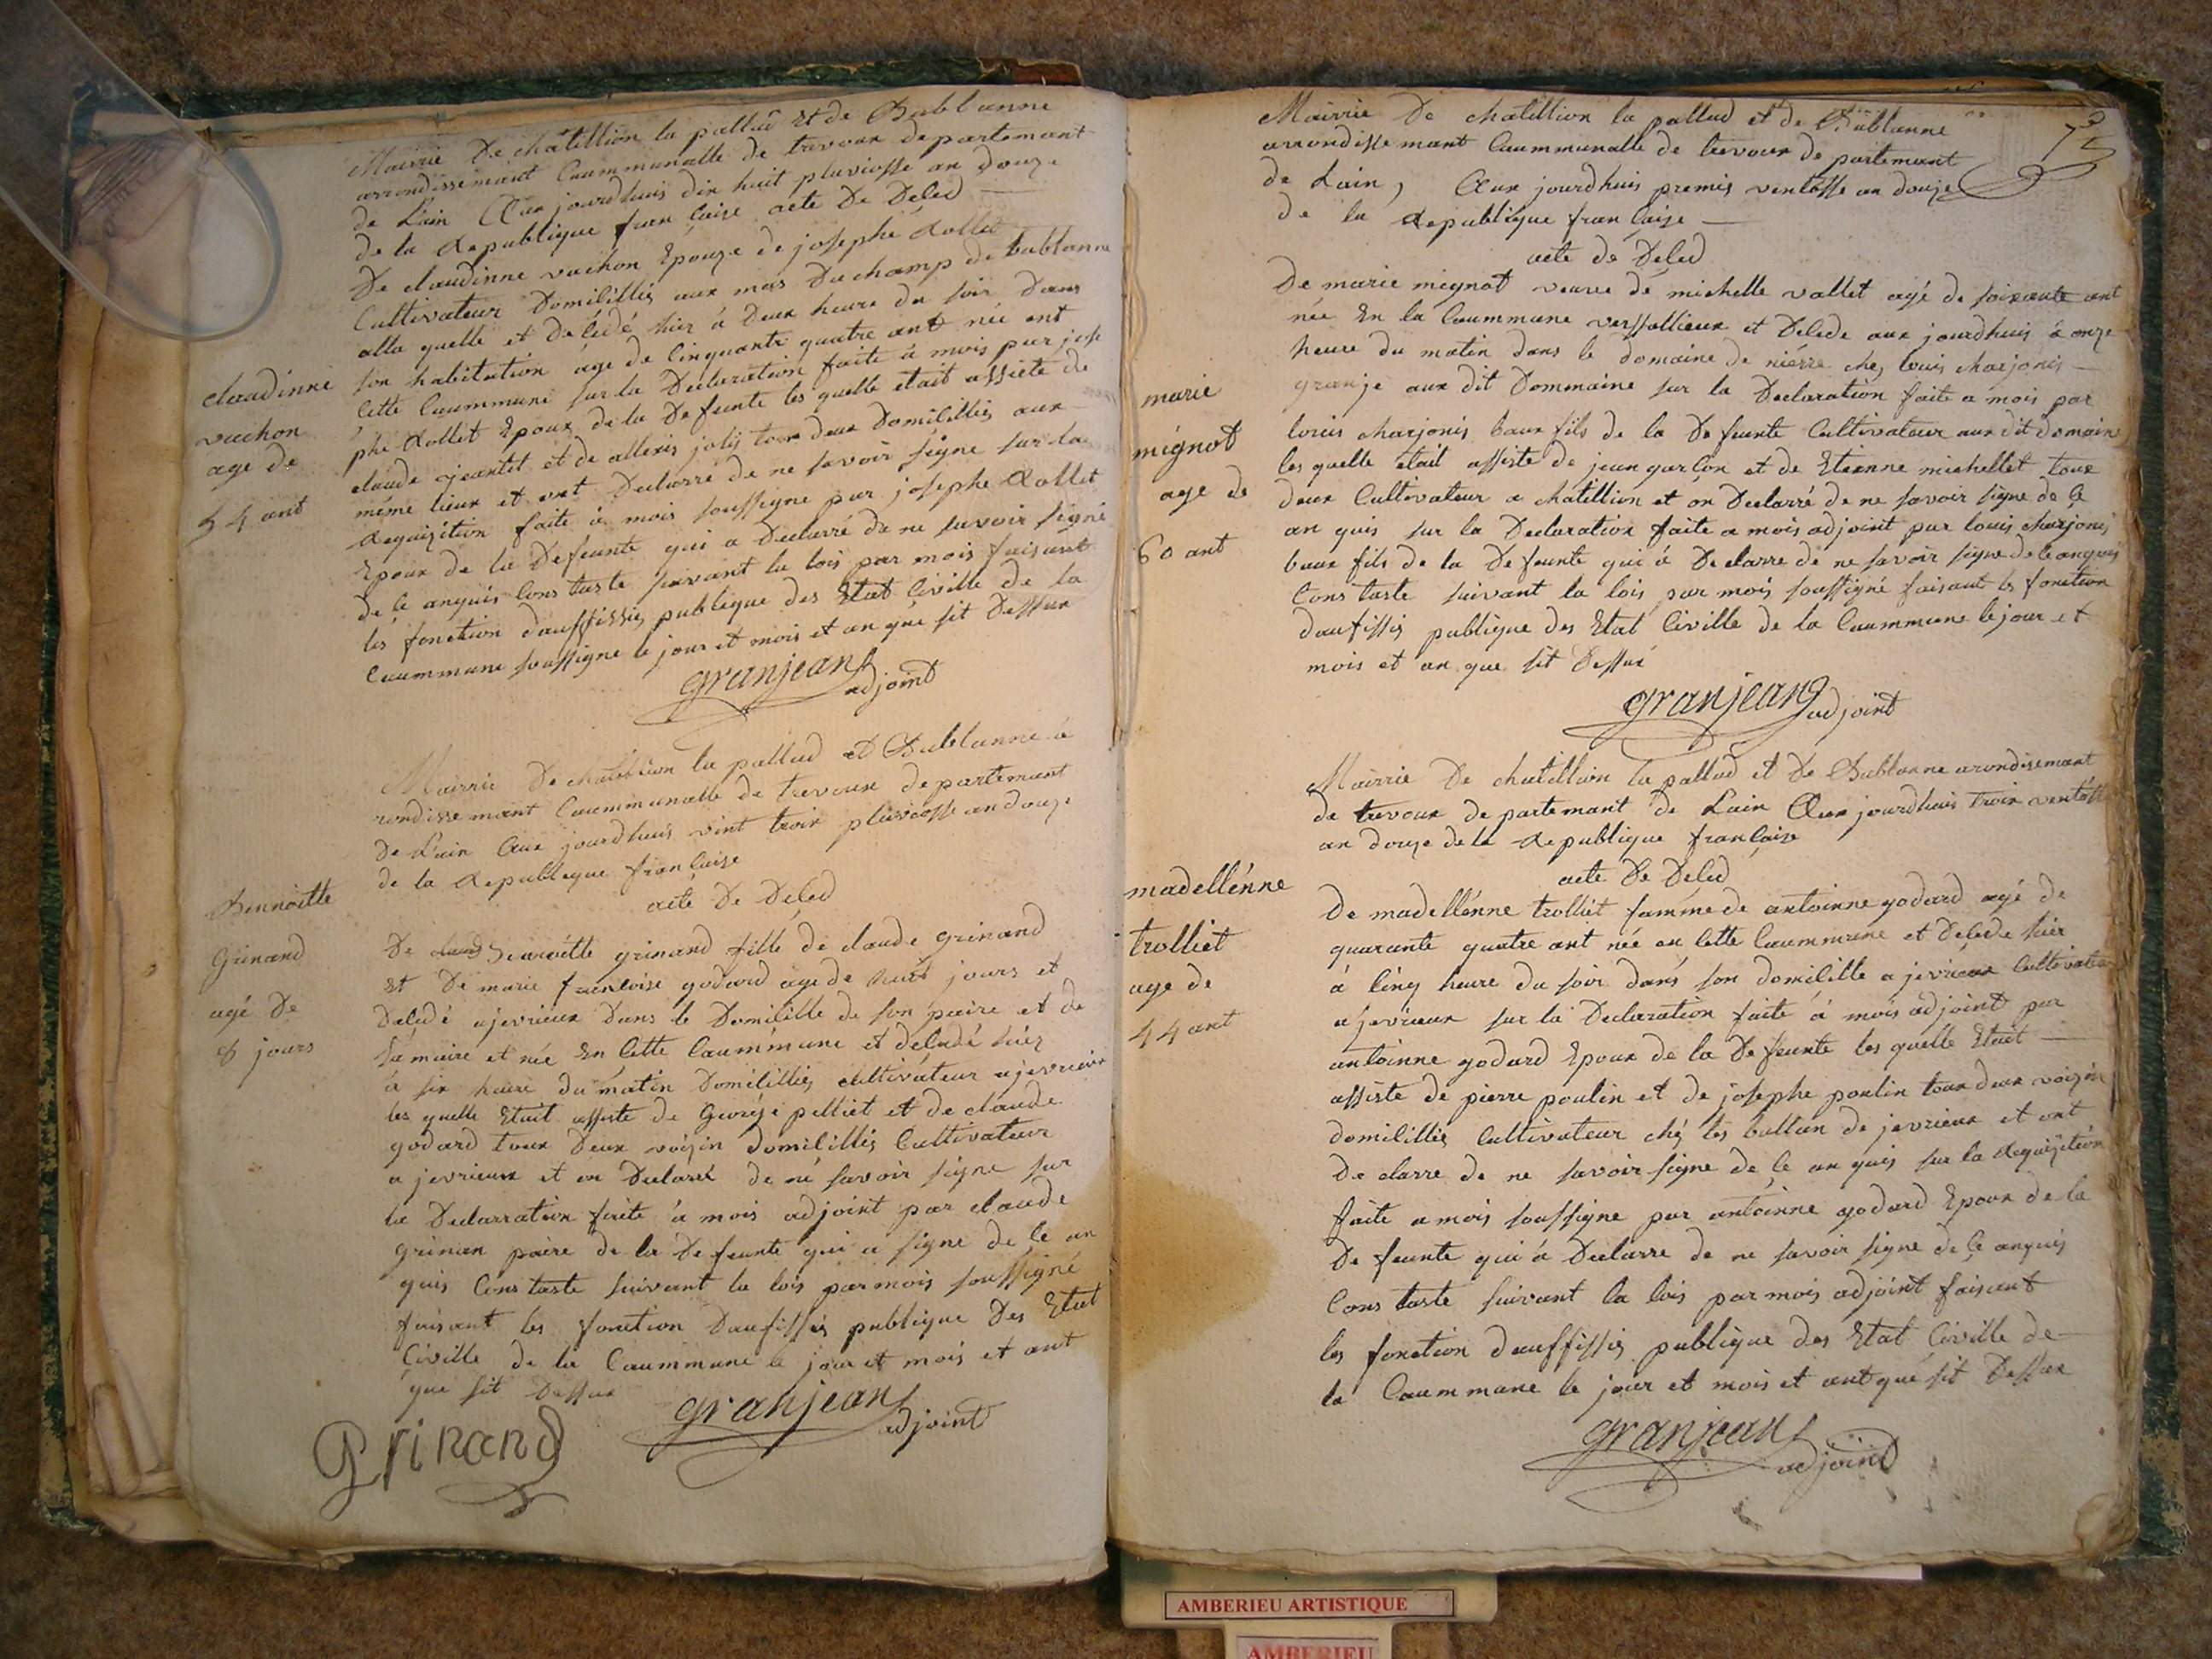 Mairrie De châtillion la pallud Et de Bublanne
arrondissemant Caummunalle de trevoux departemant
de Lain Aux jourdhuis dix huit pluviosse an douze
de la Republique fran Caise acte De Deled
De claudinne vuchon Epouze de josephe Rollet
Cultivateur Domicilliés aux mas Du champ de bublanne
alla quelle et Décédé hier à Deux heure du soir Dans
son habitation âge de Cinquante quatre ant née ent
Cette Caummune sur la Declaration faite à mois par jose
phe Rollet Epoux de la Defeunte les quelle était assiete de
claude jeantet et de allexis jolis toux deux Domicilliés aux
même lieux et ont Declarré de ne savoir signe sur la
Requizition faite à mois soussigne par josephe Rollet
Epoux de la Defeunte qui a Declarré de ne savoir signé
de Ce anquis Cons taste suivant la lois par mois faisant
les fonction dauffissiés publique des Etat Civille de la
Caummune soussigne le jour et mois et an que sit Dessux
claudinne
vuchon
age de
54 ant
granjean adjoint
Mairrie De châtillion la pallud et Bublanne à
rondissemant Caummunalle de trevoux departemant
De Lain Aux jourdhuis vint troix pluviosse an douze
de la Republique française
acte De Deled
Bennoitte
Grinand
agé De
8 jours
De Bennoitte grinand fille de claude grinand
Et De marie francoise godard age de huit jours et
Deledé a jevrieux Dans le Domicille de son paire et de
sa maire et née En Cette Caummune et deledé hier
à six heure du matin Domicilliés cultivateur a jevrieux
les quelle Etait assiste de George pelliet et de claude
godard toux Deux voizin domicilliés Cultivateur
a jevrieux et on Declarré de né savoir signe sur
la Declarration faite à mois adjoint par claude
grinan paire de la Defeunte qui a signe de Ce an
quis Cons taste suivant la lois par mois soussigné
faisant les fonction Daufissiés publique Des Etat
Civille de la Caummune le jour et mois et ant
que sit Dessux
granjean adjoint
Grinand
Mairrie De chatillion la pallud et de Bublanne
arrondissemant Caummunalle de trevoux departemant
de Lain, Aux jourdhuis premis ventosse an douze
de la Republique fran Caise
acte de Deled
De marie mignot veuve de michelle vallet agé de soixante ant
née En la Caummune versallieux et Delede aux jourdhuis à onze
heure du matin dans le domaine de nièrre chez louis charjonis
granje aux dit Dommaine sur la Declaration faite a mois par
louis charjonis baux fils de la Defeunte Cultivateur aux dit domaine
les quelle était assiste de jean garçon et de Etienne michellet toux
deux Cultivateur a chatillion et on Declarré de ne savoir signe de Ce
an quis sur la Declaration faite a mois adjoint par louis charjonis
baux fils de la Defeunte qui à Declarre de ne savoir signe de Ce anquis
Cons taste suivant la lois par mois soussigné faisant les fonction
daufissis publique des Etat Civille de la Caummune le jour et
mois et an que sit Dessux
marie
mignot
age de
60 ant
granjean adjoint
Mairrie De chatillion la pallud et De Bublanne arondisemant
de trevoux departemant de Lain Aux jourdhuis troix ventosse
an douze de la Republique française
acte De Deled
madellénne
trolliet
age de
44 ant
De madellénne trolliet famme de antoinne godard agé de
quarante quatre ant née en Cette Caummune et Delede hier
à Cinq heure du soir dans son domicille a jevrieux Cultivateur
a jevrieux sur la Declaration faite à mois adjoint par
antoinne godard Epoux de la Defeunte les quelle Etait
assiste de pierre poulin et de josephe poulin toux deux voizin
domicilliés Cultivateur ché les ballan de jevrieux et ont
De clarre de ne savoir signe de Ce an quis sur la Requizition
faite a mois soussigne par antoinne godard Epoux de la
De feunte qui à Declarre de ne savoir signe de Ce anquis
Cons taste suivant la lois par mois adjoint faisant
les fonction dauffissis publique des Etat Civille de
la Caummune le jour et mois et ant que sit Dessux
granjean adjoint
AMBERIEU ARTISTIQUE
AMBERIEU